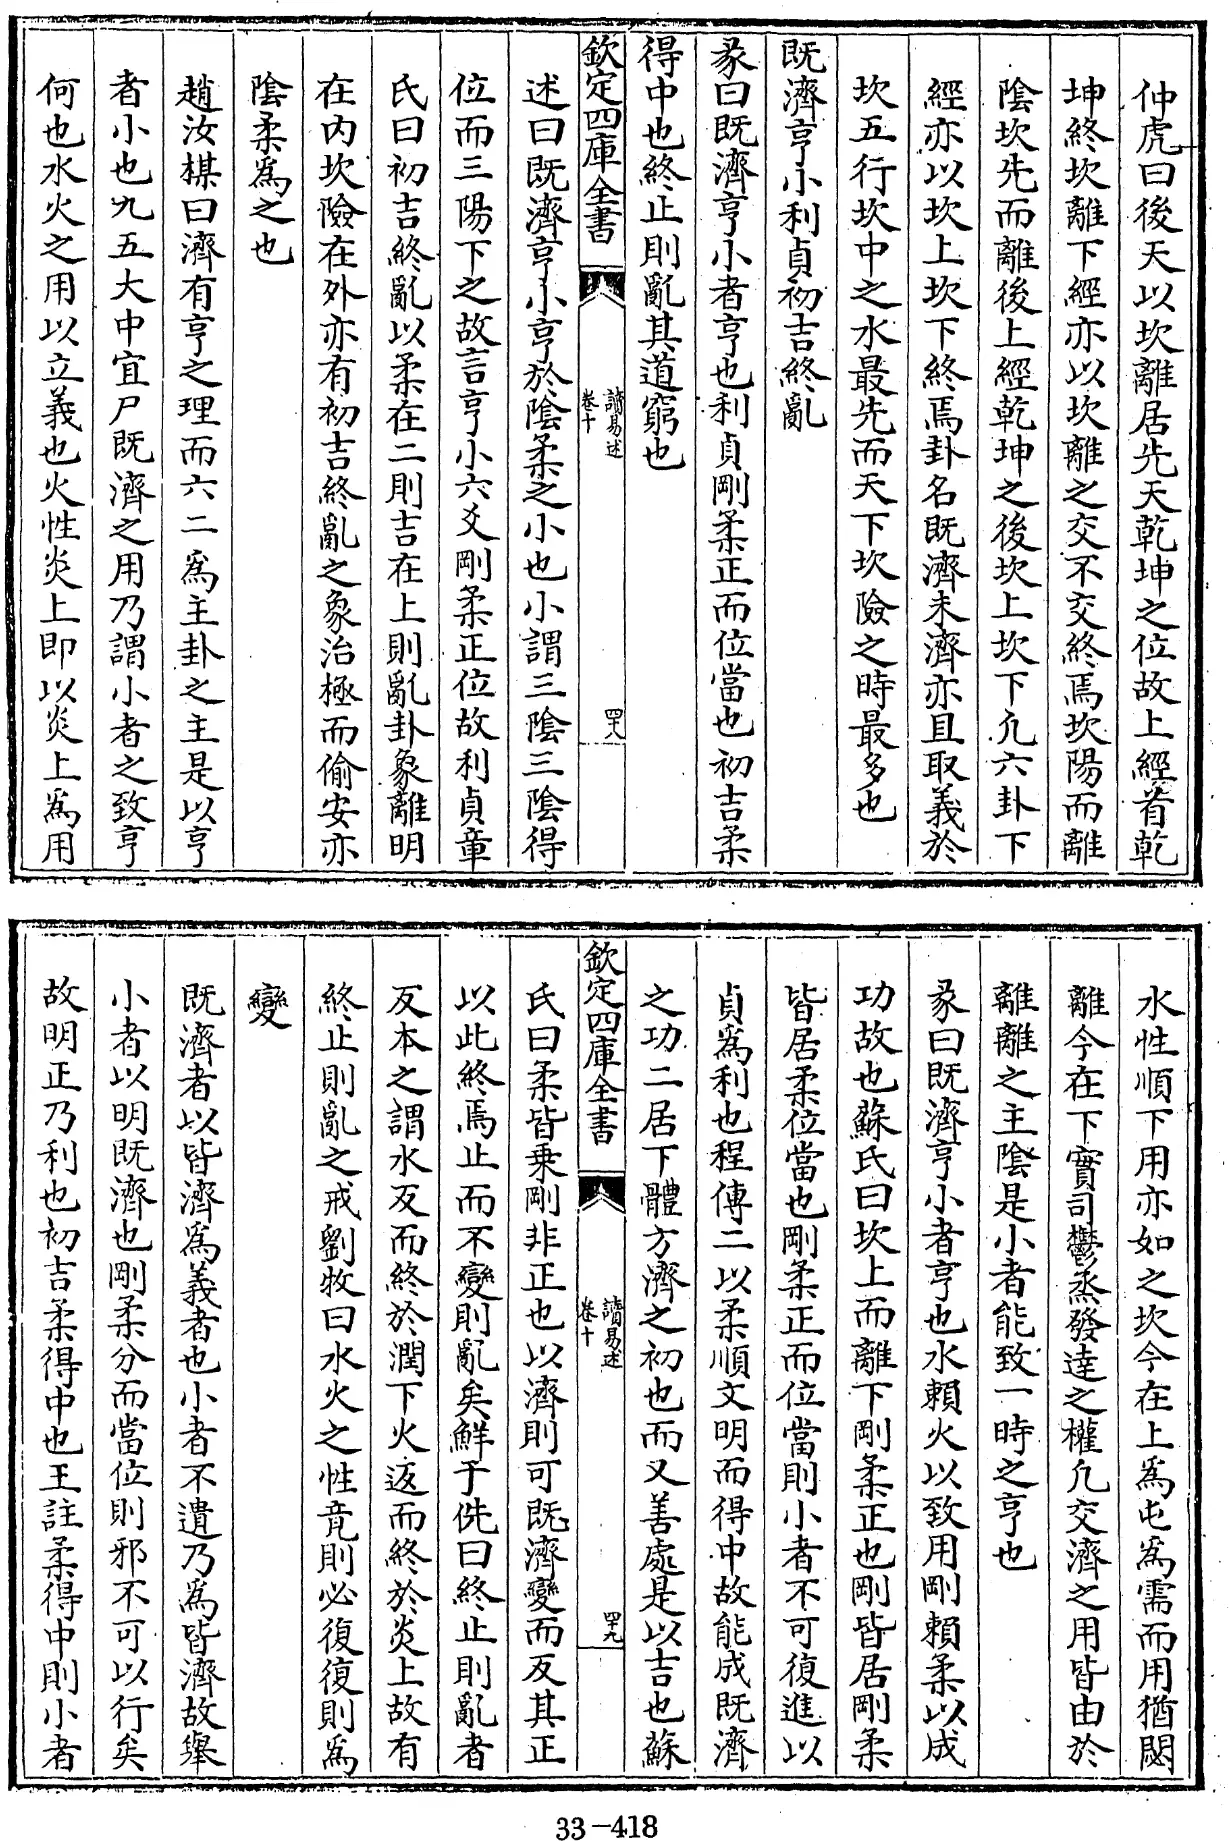 仲虎曰後天以坎離居先天乾坤之位故上經首乾
坤終坎離下經亦以坎離之交不交終焉坎陽而離
陰坎先而離後上經乾坤之後坎上坎下凢六卦下
經亦以坎上坎下終焉卦名既濟未濟亦且取義於
坎五行坎中之水最先而天下坎險之時最多也
既濟亨小利貞初吉終亂
彖曰既濟亨小者亨也利貞剛柔正而位當也初吉柔
得中也終止則亂其道窮也
欽定四庫全書
讀易述
卷十
四十八
述曰既濟亨小亨於陰柔之小也小謂三陰三陰得
位而三陽下之故言亨小六爻剛柔正位故利貞章
氏曰初吉終亂以柔在二則吉在上則亂卦象離明
在内坎險在外亦有初吉終亂之象治極而偷安亦
陰柔爲之也
趙汝楳曰濟有亨之理而六二爲主卦之主是以亨
者小也九五大中宜尸既濟之用乃謂小者之致亨
何也水火之用以立義也火性炎上即以炎上爲用
水性順下用亦如之坎今在上爲屯爲需而用猶閟
離今在下實司鬱蒸發達之權凢交濟之用皆由於
離離之主陰是小者能致一時之亨也
彖曰既濟亨小者亨也水賴火以致用剛賴柔以成
功故也蘇氏曰坎上而離下剛柔正也剛皆居剛柔
皆居柔位當也剛柔正而位當則小者不可復進以
貞爲利也程傳二以柔順文明而得中故能成既濟
之功二居下體方濟之初也而又善處是以吉也蘇
欽定四庫全書
讀易述
卷十
四十九
氏曰柔皆乗剛非正也以濟則可既濟變而反其正
以此終焉止而不變則亂矣鮮于侁曰終止則亂者
反本之謂水反而終於潤下火返而終於炎上故有
終止則亂之戒劉牧曰水火之性竟則必復復則爲
變
既濟者以皆濟爲義者也小者不遺乃爲皆濟故舉
小者以明既濟也剛柔分而當位則邪不可以行矣
故明正乃利也初吉柔得中也王註柔得中則小者
33-418